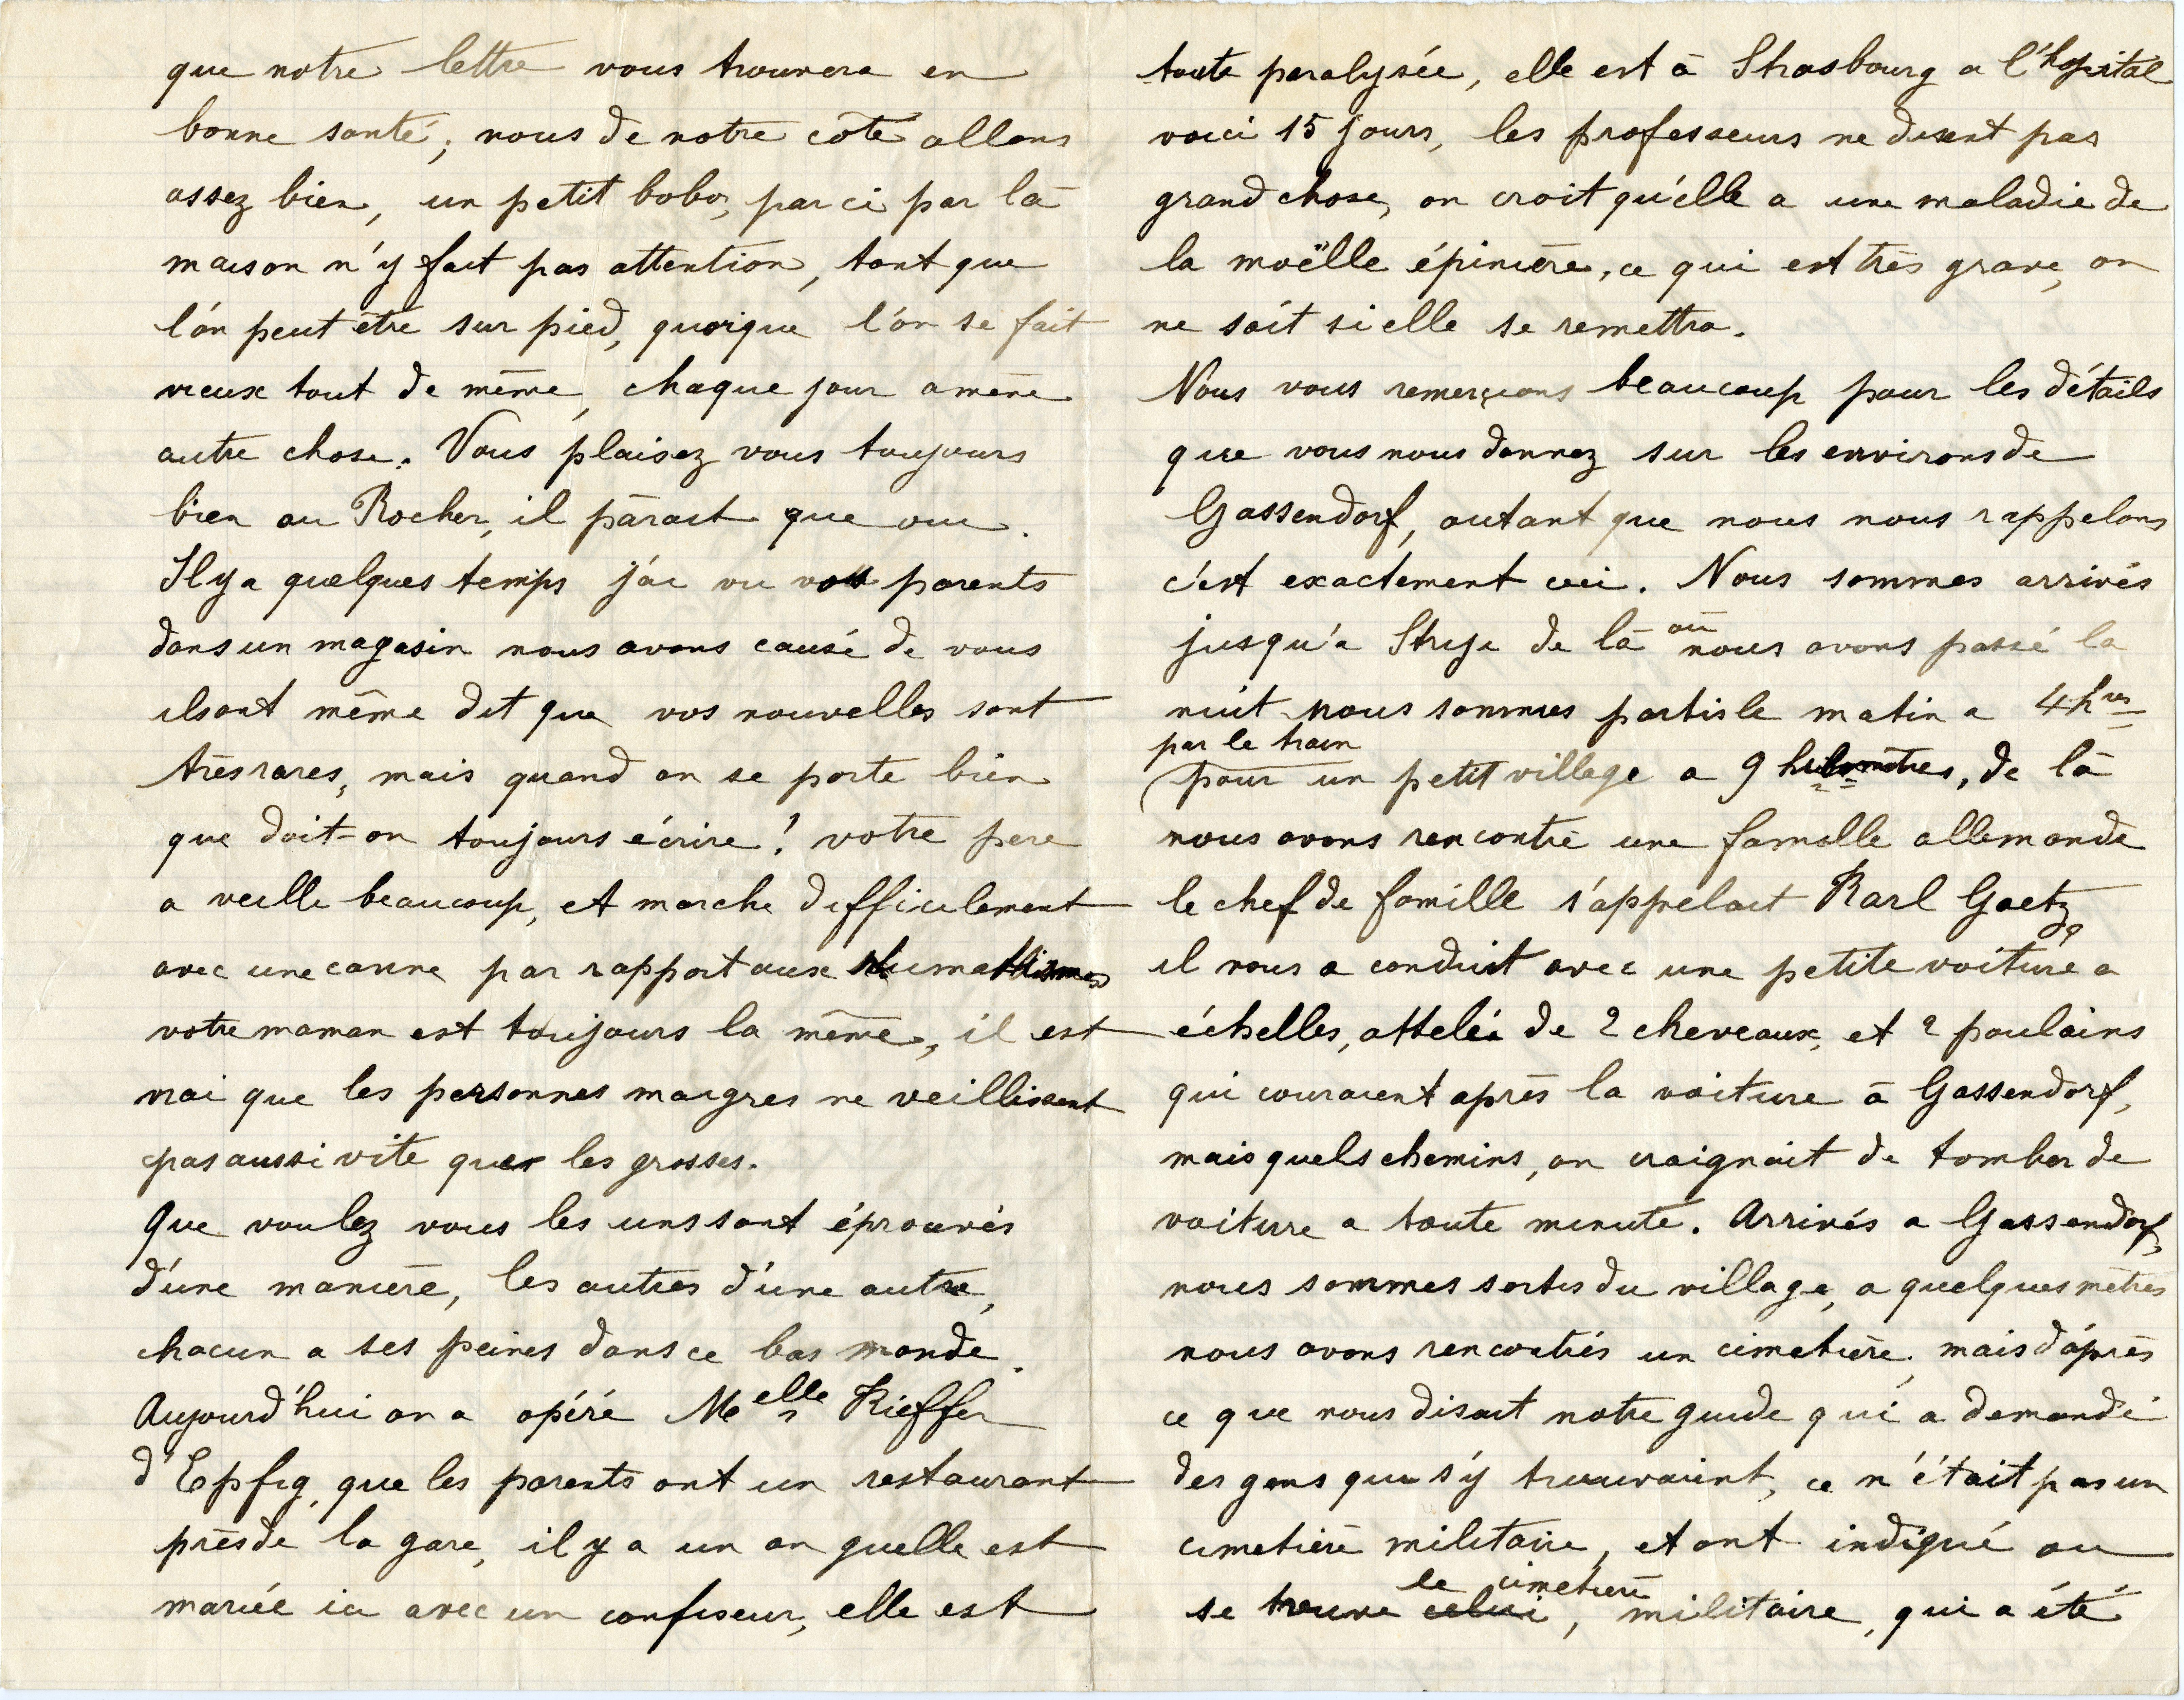 que notre lettre vous trouvera en
bonne santé, nous de notre côté allons
assez bien, un petit bobo, par ci par là
maison n'y fait pas attention, tant que
l'on peut être sur pied, quoique l'on se fait
vieux tout de même, chaque jour amène
autre chose. Vous plaisez vous toujours
bien au Rocher, il parait que oui.
Il y a quelques temps j'ai vu vos parents
dans un magasin nous avons causé de vous
ils ont même dit que vos nouvelles sont
très rares, mais quand on se porte bien
que doit-on toujours écrire! votre pere
a veilli beaucoup, et marche difficilement
avec une canne par rapport aux rhumatismes
votre maman est toujours la même, il est
vrai que les personnes maigres ne veillissent
pas aussi vite que les grosses.
Que voulez vous les uns sont éprouvés
d'une manière, les autres d'une autre,
chacun a ses peines dans ce bas monde.
Aujourd'hui on a opéré Melle Kieffer
d'Epfig, que les parents ont un restaurant
près de la gare, il y a un an quelle est
mariée ici avec un confiseur, elle est
toute paralysée, elle est à Strasbourg a l'hopital
voici 15 jours, les professeurs ne disent pas
grand chose, on croit qu'elle a une maladie de
la moëlle épinière, ce qui est très grave, on
ne sait si elle se remettra.
Nous vous remerçions beaucoup pour les détails
que vous nous donnez sur les environs de
Gassendorf, autant que nous nous rappelons
c'est exactement ceci. Nous sommes arrivés
jusqu'a Stryje de là où nous avons passé la
nuit nous sommes partis le matin a 4 hres
par le train
(pour un petit village a 9 kilomètres, de là
nous avons rencontré une famille allemande
le chef de famille s'appelait Karl Gaetz,
il nous a conduit avec une petite voiture a
échelles, attelée de 2 cheveaux, et 2 poulains
qui couraient après la voiture à Gassendorf,
mais quels chemins, on craignait de tomber de
voiture a toute minute. Arrivés a Gassendorf,
nous sommes sortis du village, a quelques mètres
nous avons rencontrés un cimetière, mais d'après
ce que nous disait notre guide qui a demandé
des gens qui s'y trouvaient, ce n'était pas un
cimetière militaire, et ont indiqué ou
le cimetière
se trouve celui, militaire, qui a été